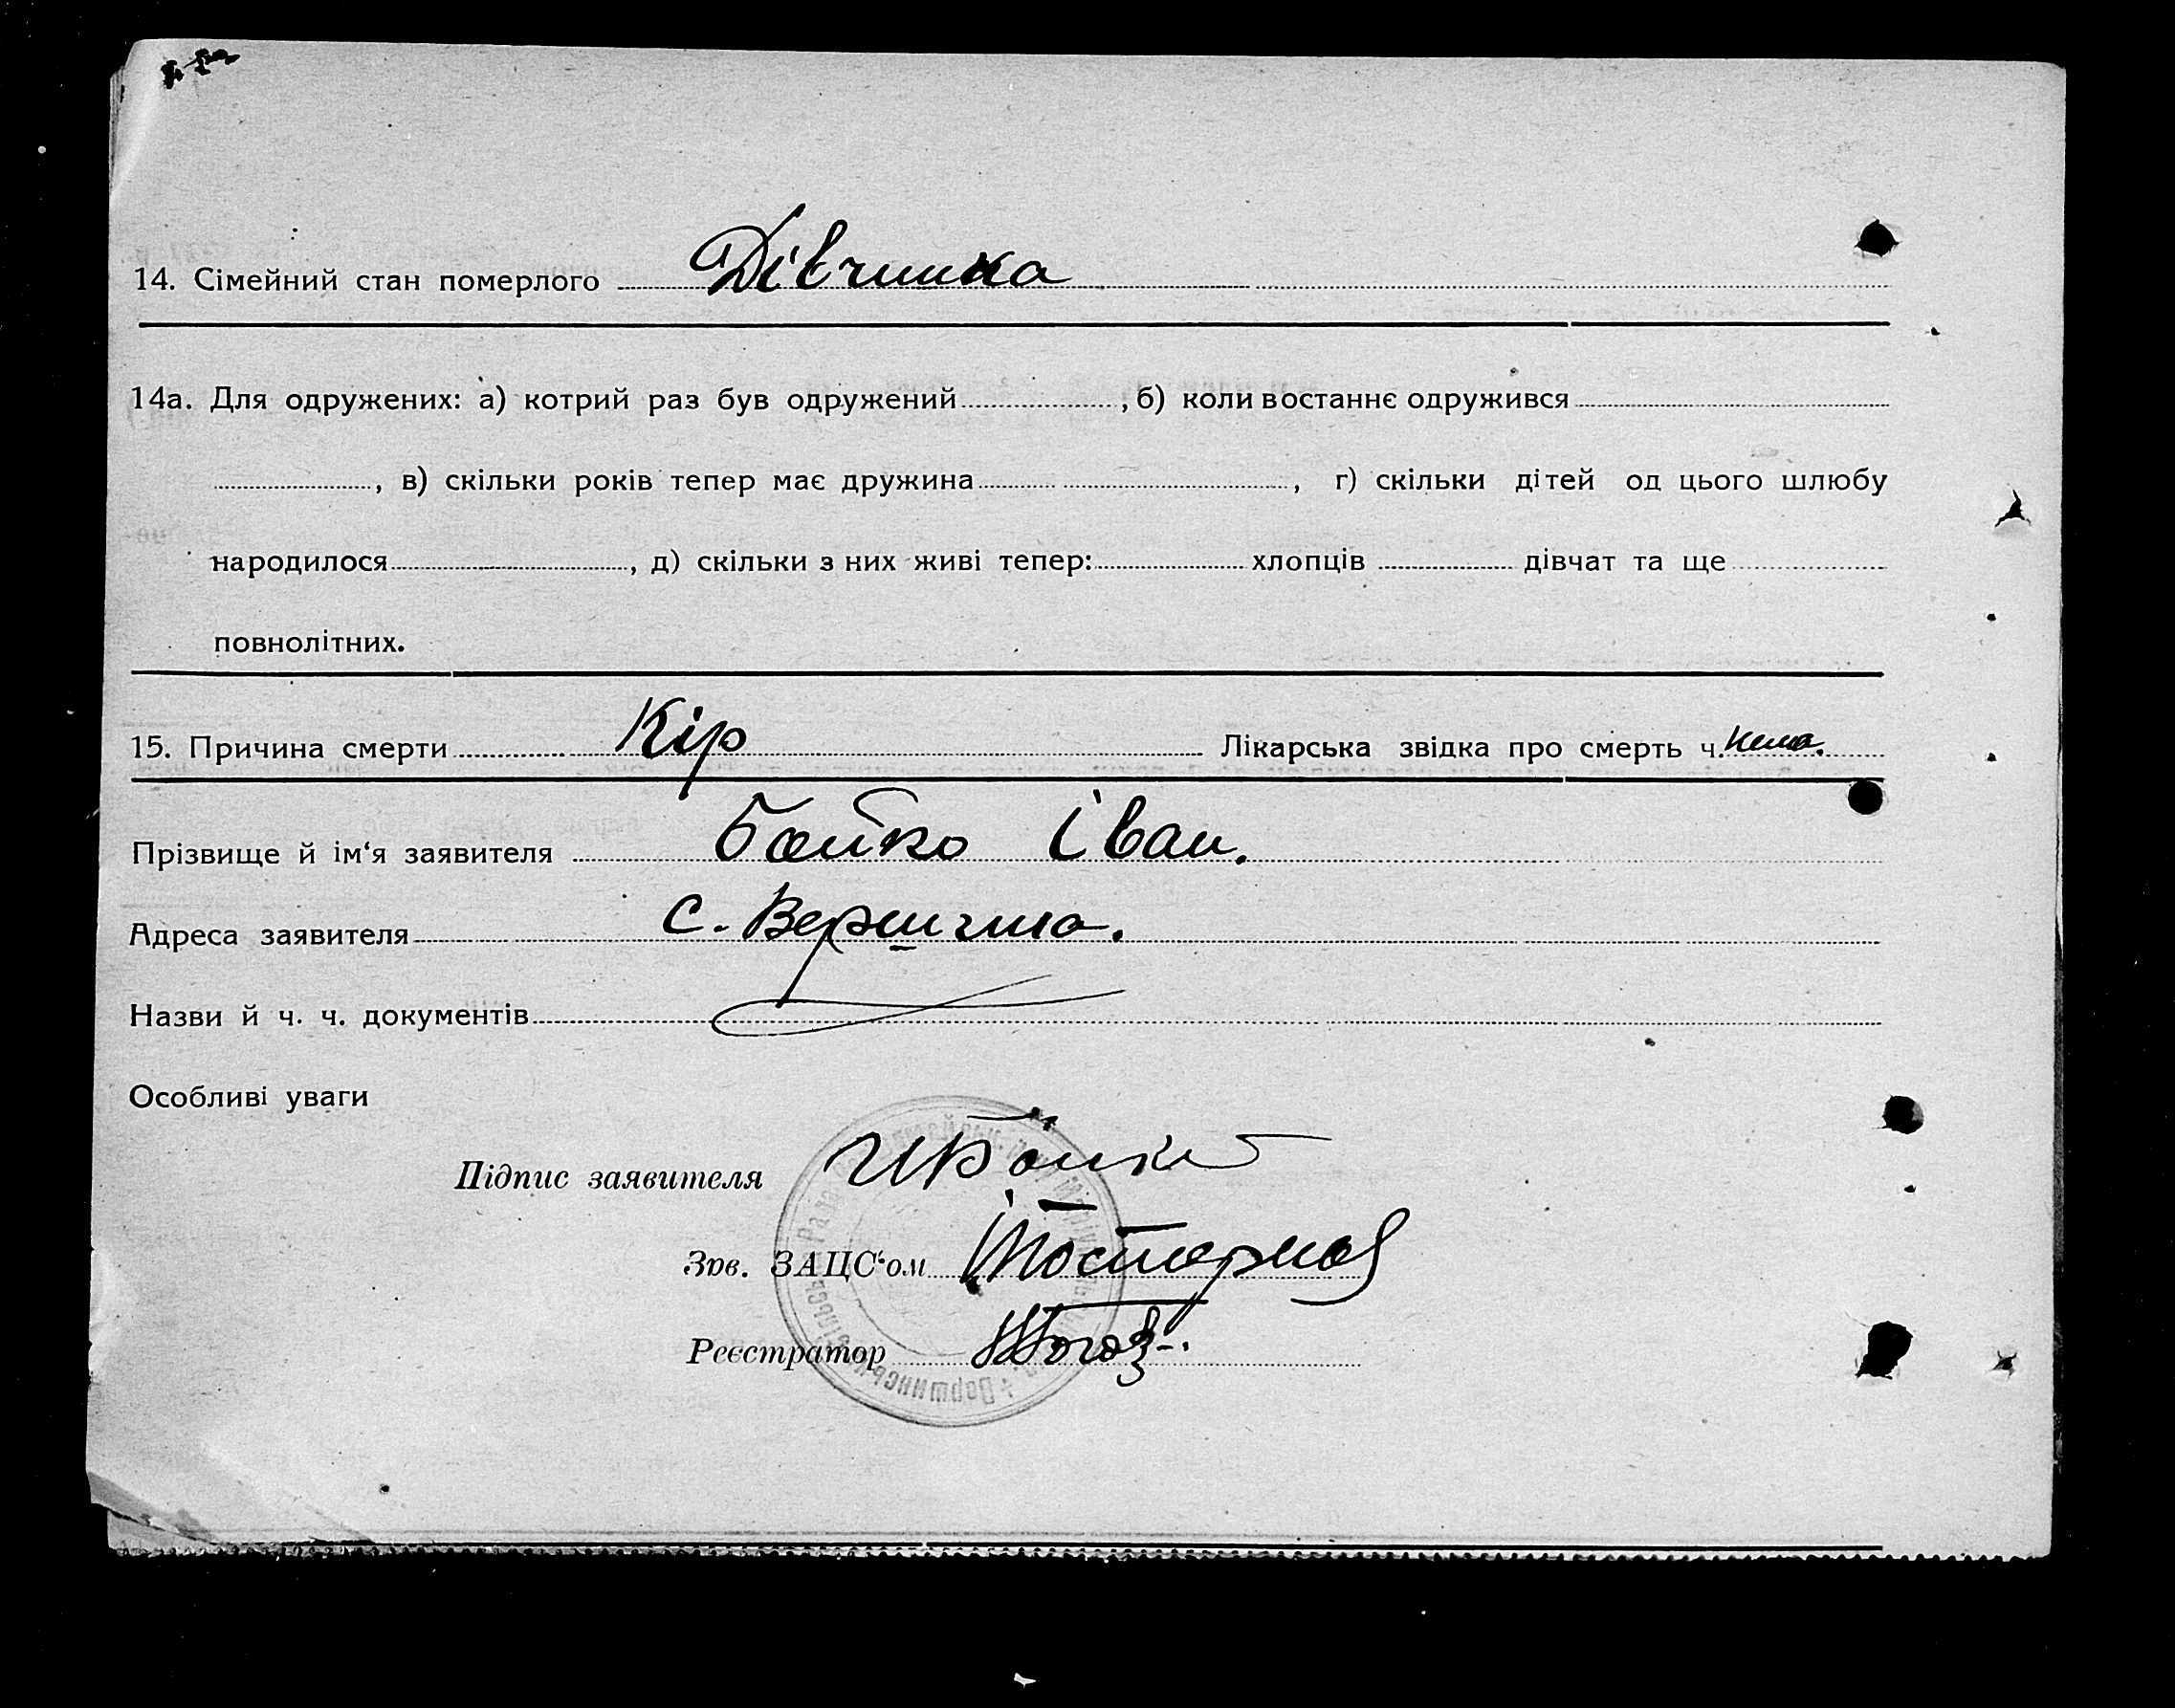 14. Сімейний стан померлого Дівчинка
14а. Для одружених: а) котрий раз був одружений , б) коли востаннє одружився
, в) скільки років тепер має дружина , г) скільки дітей од цього шлюбу
народилося , д) скільки з них живі тепер: хлопців дівчат та ще
повнолітних.
15. Причина смерти Кір Лікарська звідка про смерть ч. нема.
Прізвище й ім‘я заявителя Бойко Іван.
Адреса заявителя с. Вершина.
Назви й ч. ч. документів
Особливі уваги
Підпис заявителя И Бойко
Зав. ЗАЦС‘ом
Реєстратор